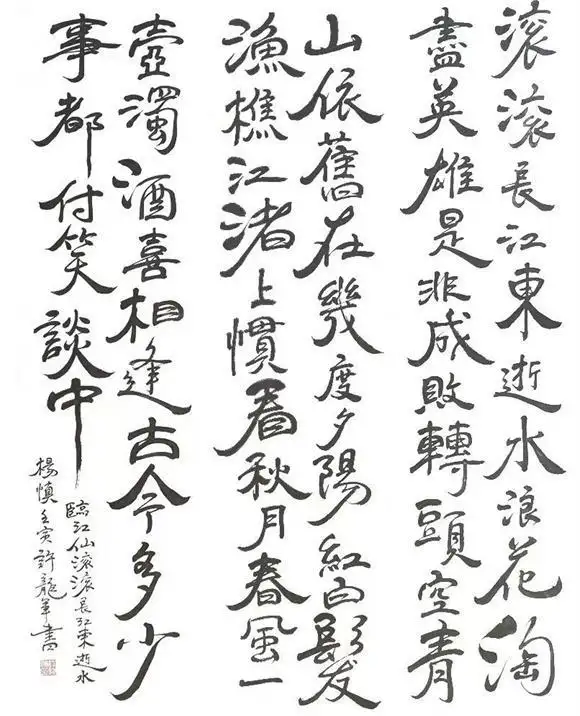 滚滚長江東逝水浪花淘
盡英雄是非成敗轉頭空青
山依舊在幾度夕陽紅白髮
漁樵江渚上慣看秋月春風一
壺濁酒喜相逢古今多少
事都付笑談中
臨江仙滚滚長江東逝水
楊慎壬寅許龍年書